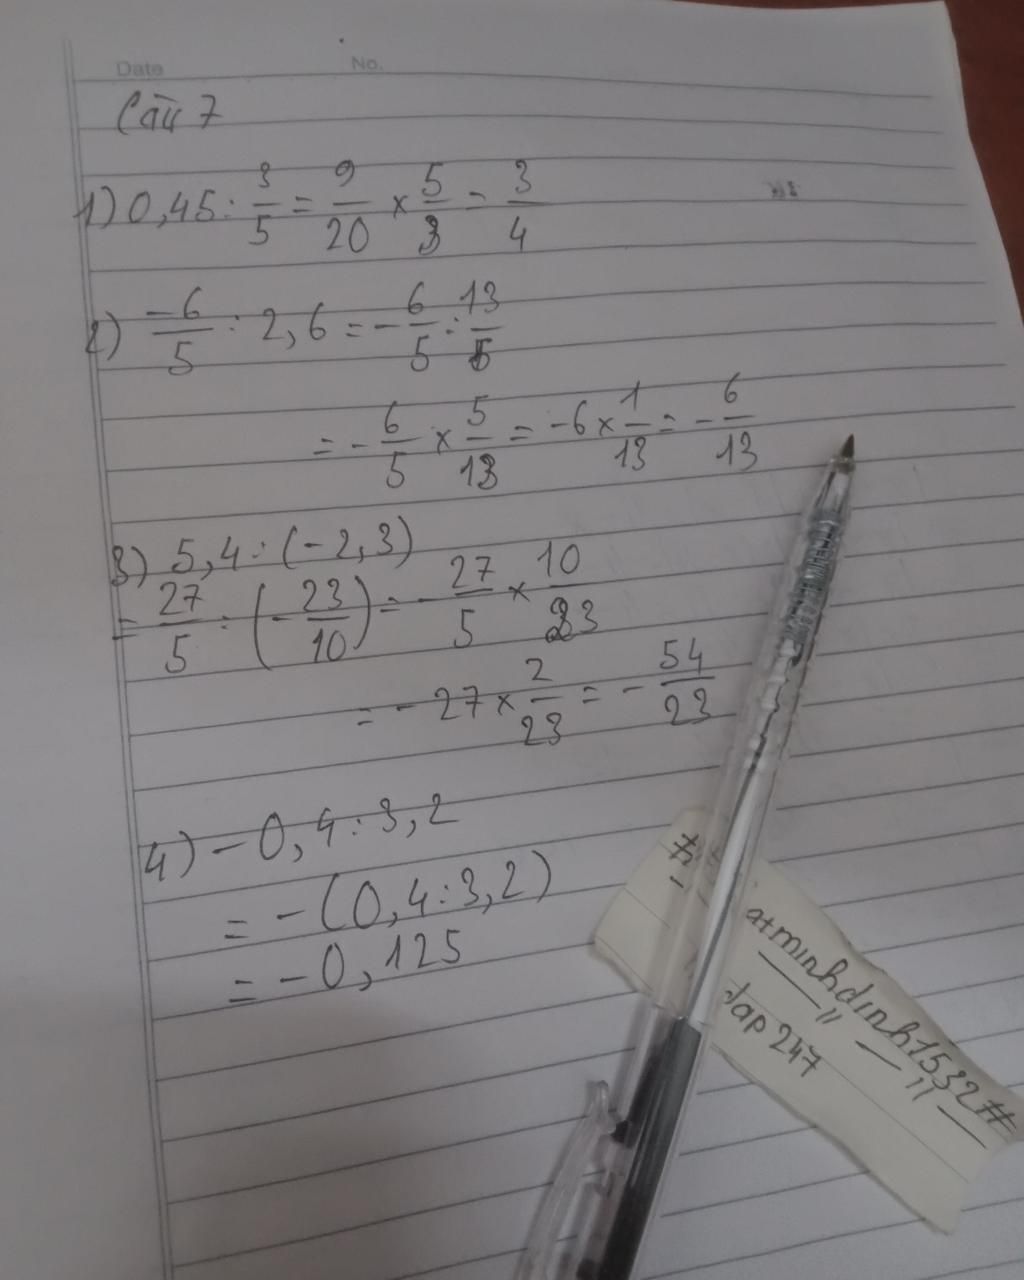 Date No.
Câu 7
1) 0,45 : 3/5 = 9/20 × 5/3 = 3/4
2) -6/5 : 2,6 = -6/5 : 13/5
= -6/5 × 5/13 = -6 × 1/13 = -6/13
3) 5,4 : (-2,3)
= 27/5 : (-23/10) = -27/5 × 10/23
= -27 × 2/23 = -54/23
4) -0,4 : 3,2
= -(0,4 : 3,2)
= -0,125
atminhdinh1532#
dap 247